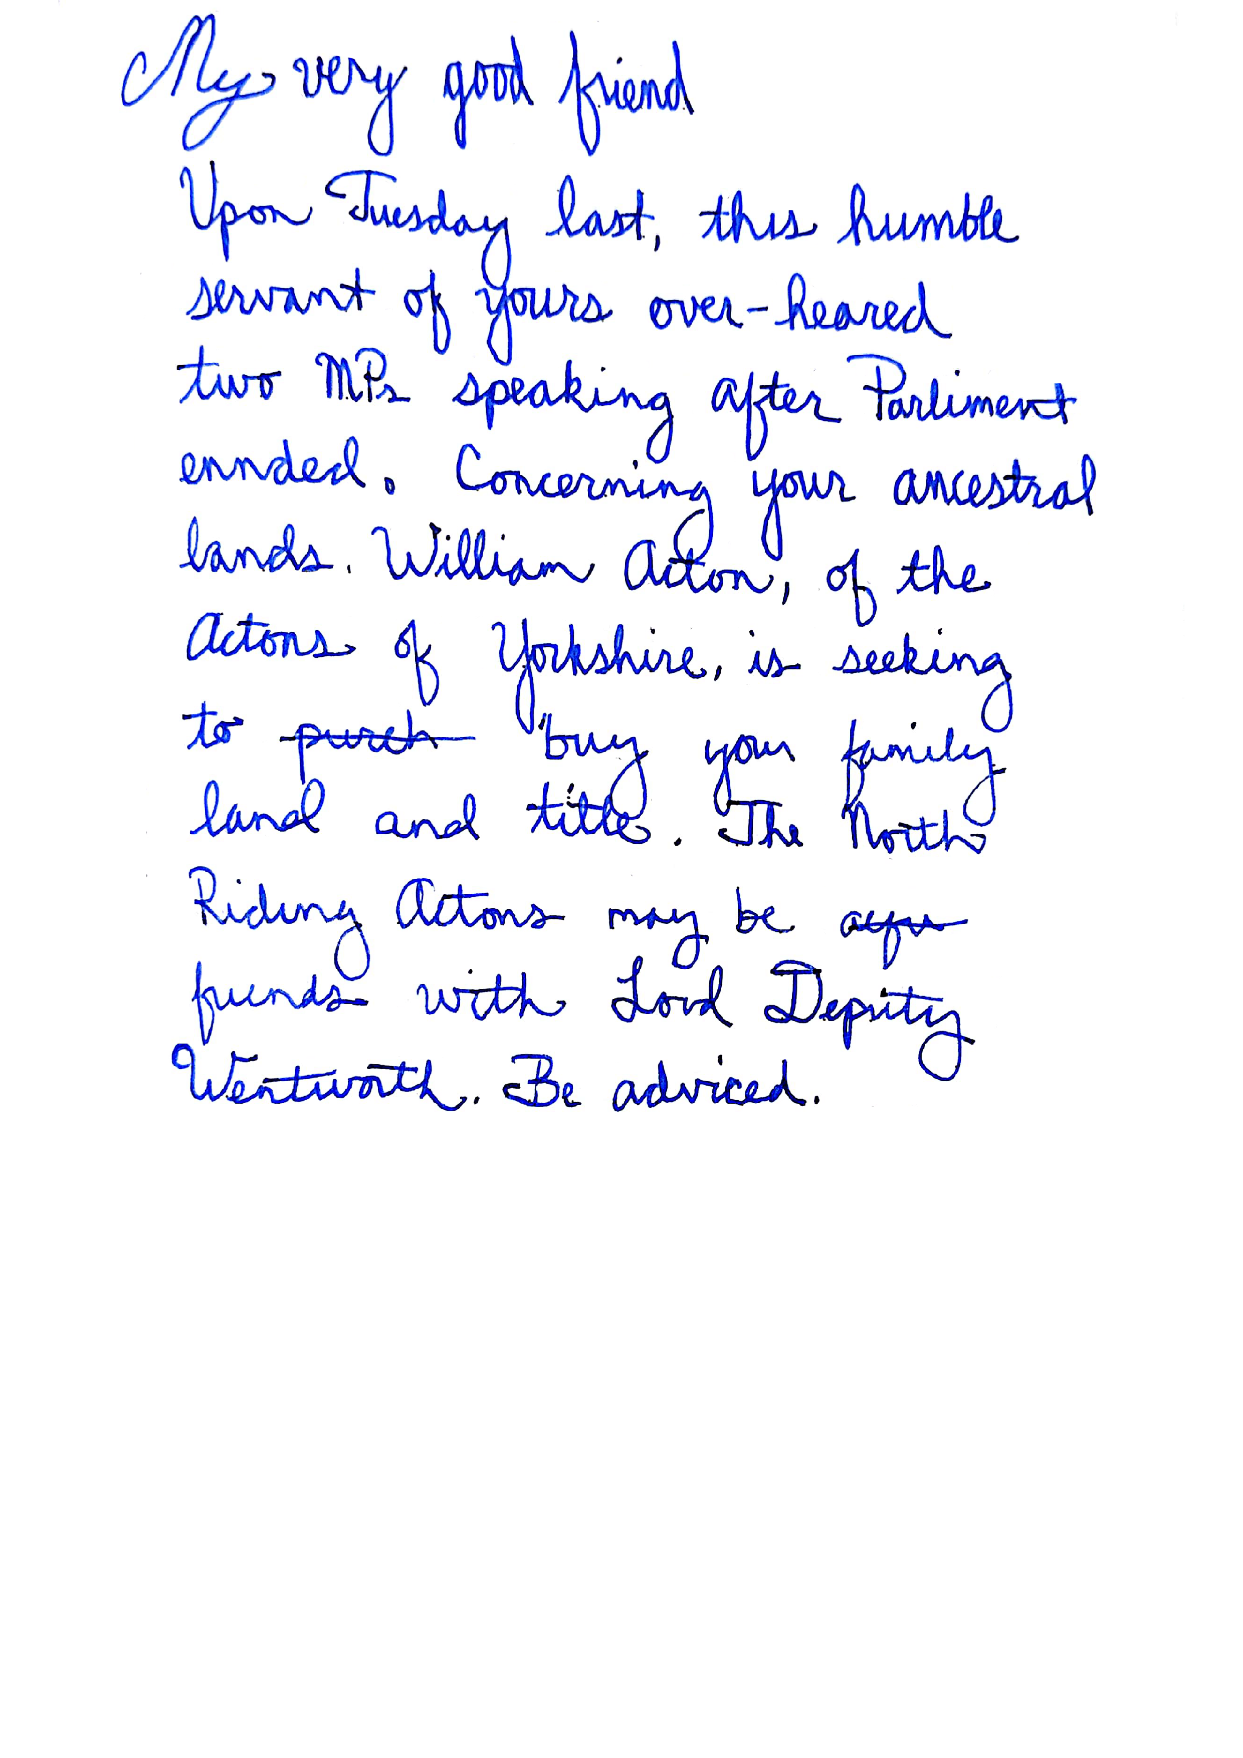 My very good friend
Upon Tuesday last, this humble
servant of yours over-heared
two MPs speaking after Parliment
ennded. Concerning your ancestral
lands. William Acton, of the
Actons of Yorkshire, is seeking
to purch buy your family
land and title. The North
Riding Actons may be
friends with Lord Deputy
Wentworth. Be adviced.